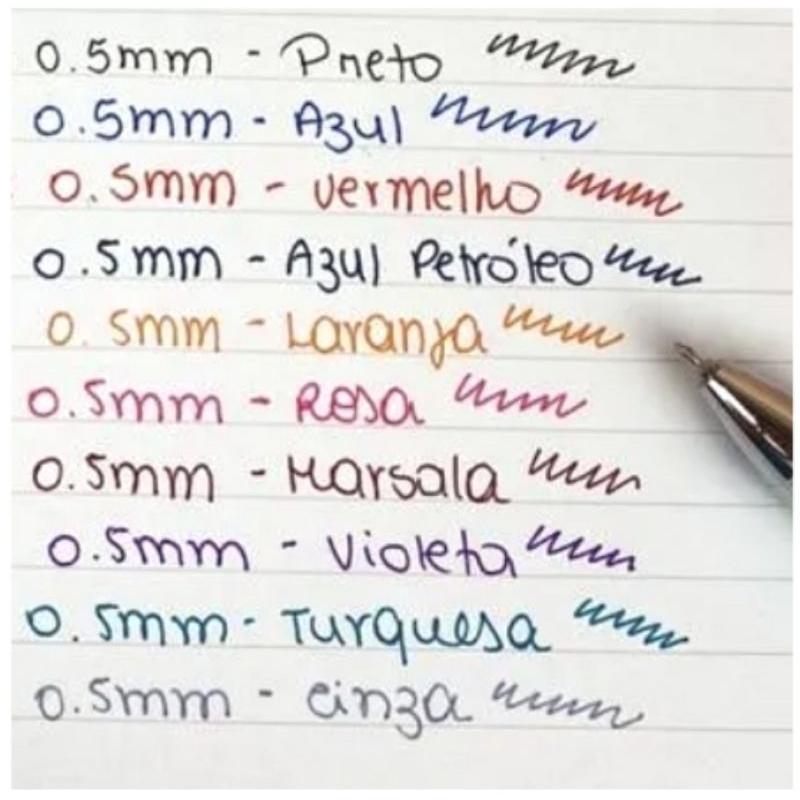 0.5mm - Preto
0.5mm - Azul
0.5mm - vermelho
0.5mm - Azul Petróleo
0.5mm - Laranja
0.5mm - Rosa
0.5mm - Marsala
0.5mm - Violeta
0.5mm - Turquesa
0.5mm - cinza